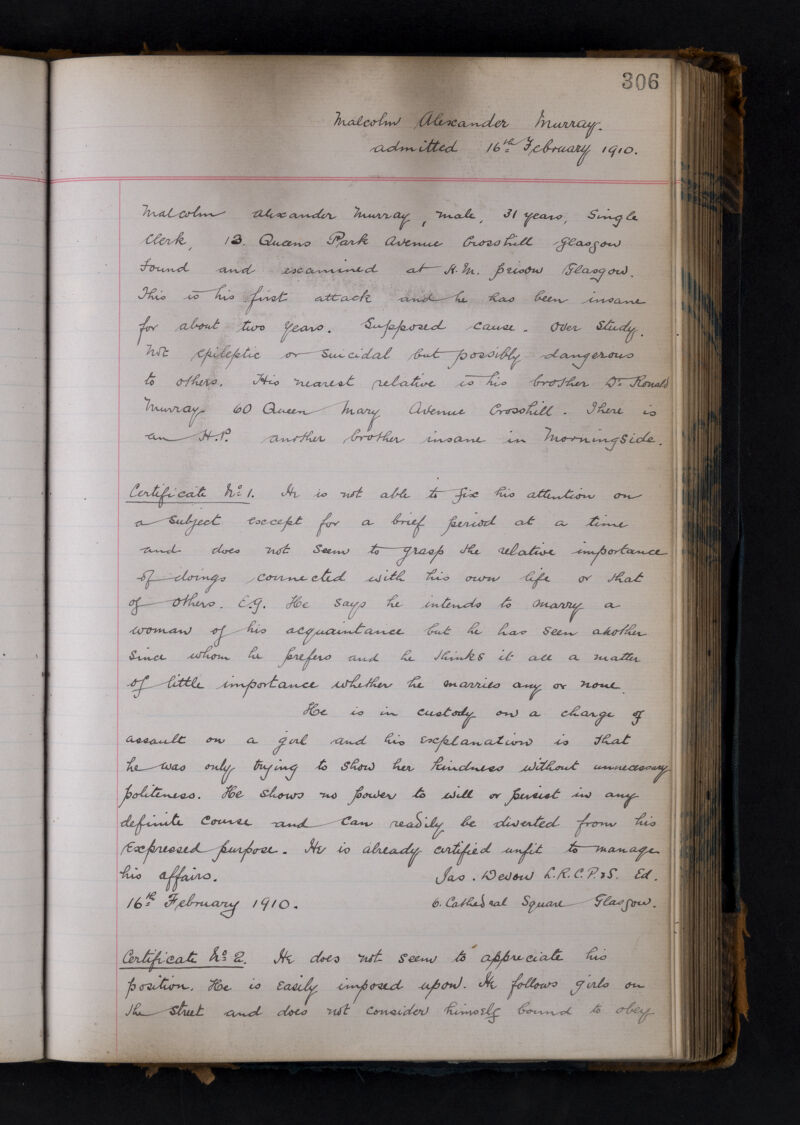 306
Malcolm Alexander Murray.
admitted 16th February 1910.
Malcolm Alexander Murray, male, 31 years, Single
Clerk, 13. Queens Park Avenue Crosshill Glasgow
Found and examined at H.M. prison Glasgow.
This is his first attack and he has been insane
for about two years. Supposed cause. Over Study.
Not epileptic or suicidal but possibly dangerous
to others. His nearest relative is his brother Dr Ronald
Murray 60 Queen Mary Avenue Crosshill. There is
an H.P. another brother insane in Morningside.
Certificate No 1. He is not able to fix his attention on
a subject except for a brief period at a time
and does not seem to grasp the relative importance
of doings connected with his own life or that
of others. E.g. He says he intends to marry a
woman of his acquaintance but he has seen another
since whom he prefers and he thinks it all a matter
of little importance whether he marries any or none.
He is in custody on a charge of
assault on a girl and his explanation is that
he was only trying to show her kindness without unnecessary
politeness. He shows no power to will or persist in any
definite course and can readily be diverted from his
expressed purpose. He is already certified unfit to manage
his affairs. Jas. Devon L.R.C.P. & S. Ed.
16th February 1910. 6. Cathedral Square Glasgow.
Certificate No 2. He does not seem to appreciate his
position. He is easily imposed upon. He follows girls on
the street and does not consider himself bound to obey